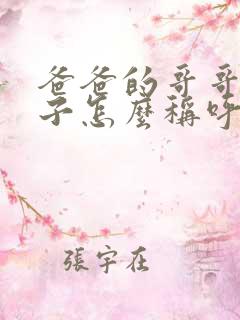 爸爸的哥哥
子怎麼稱呼
張宇在